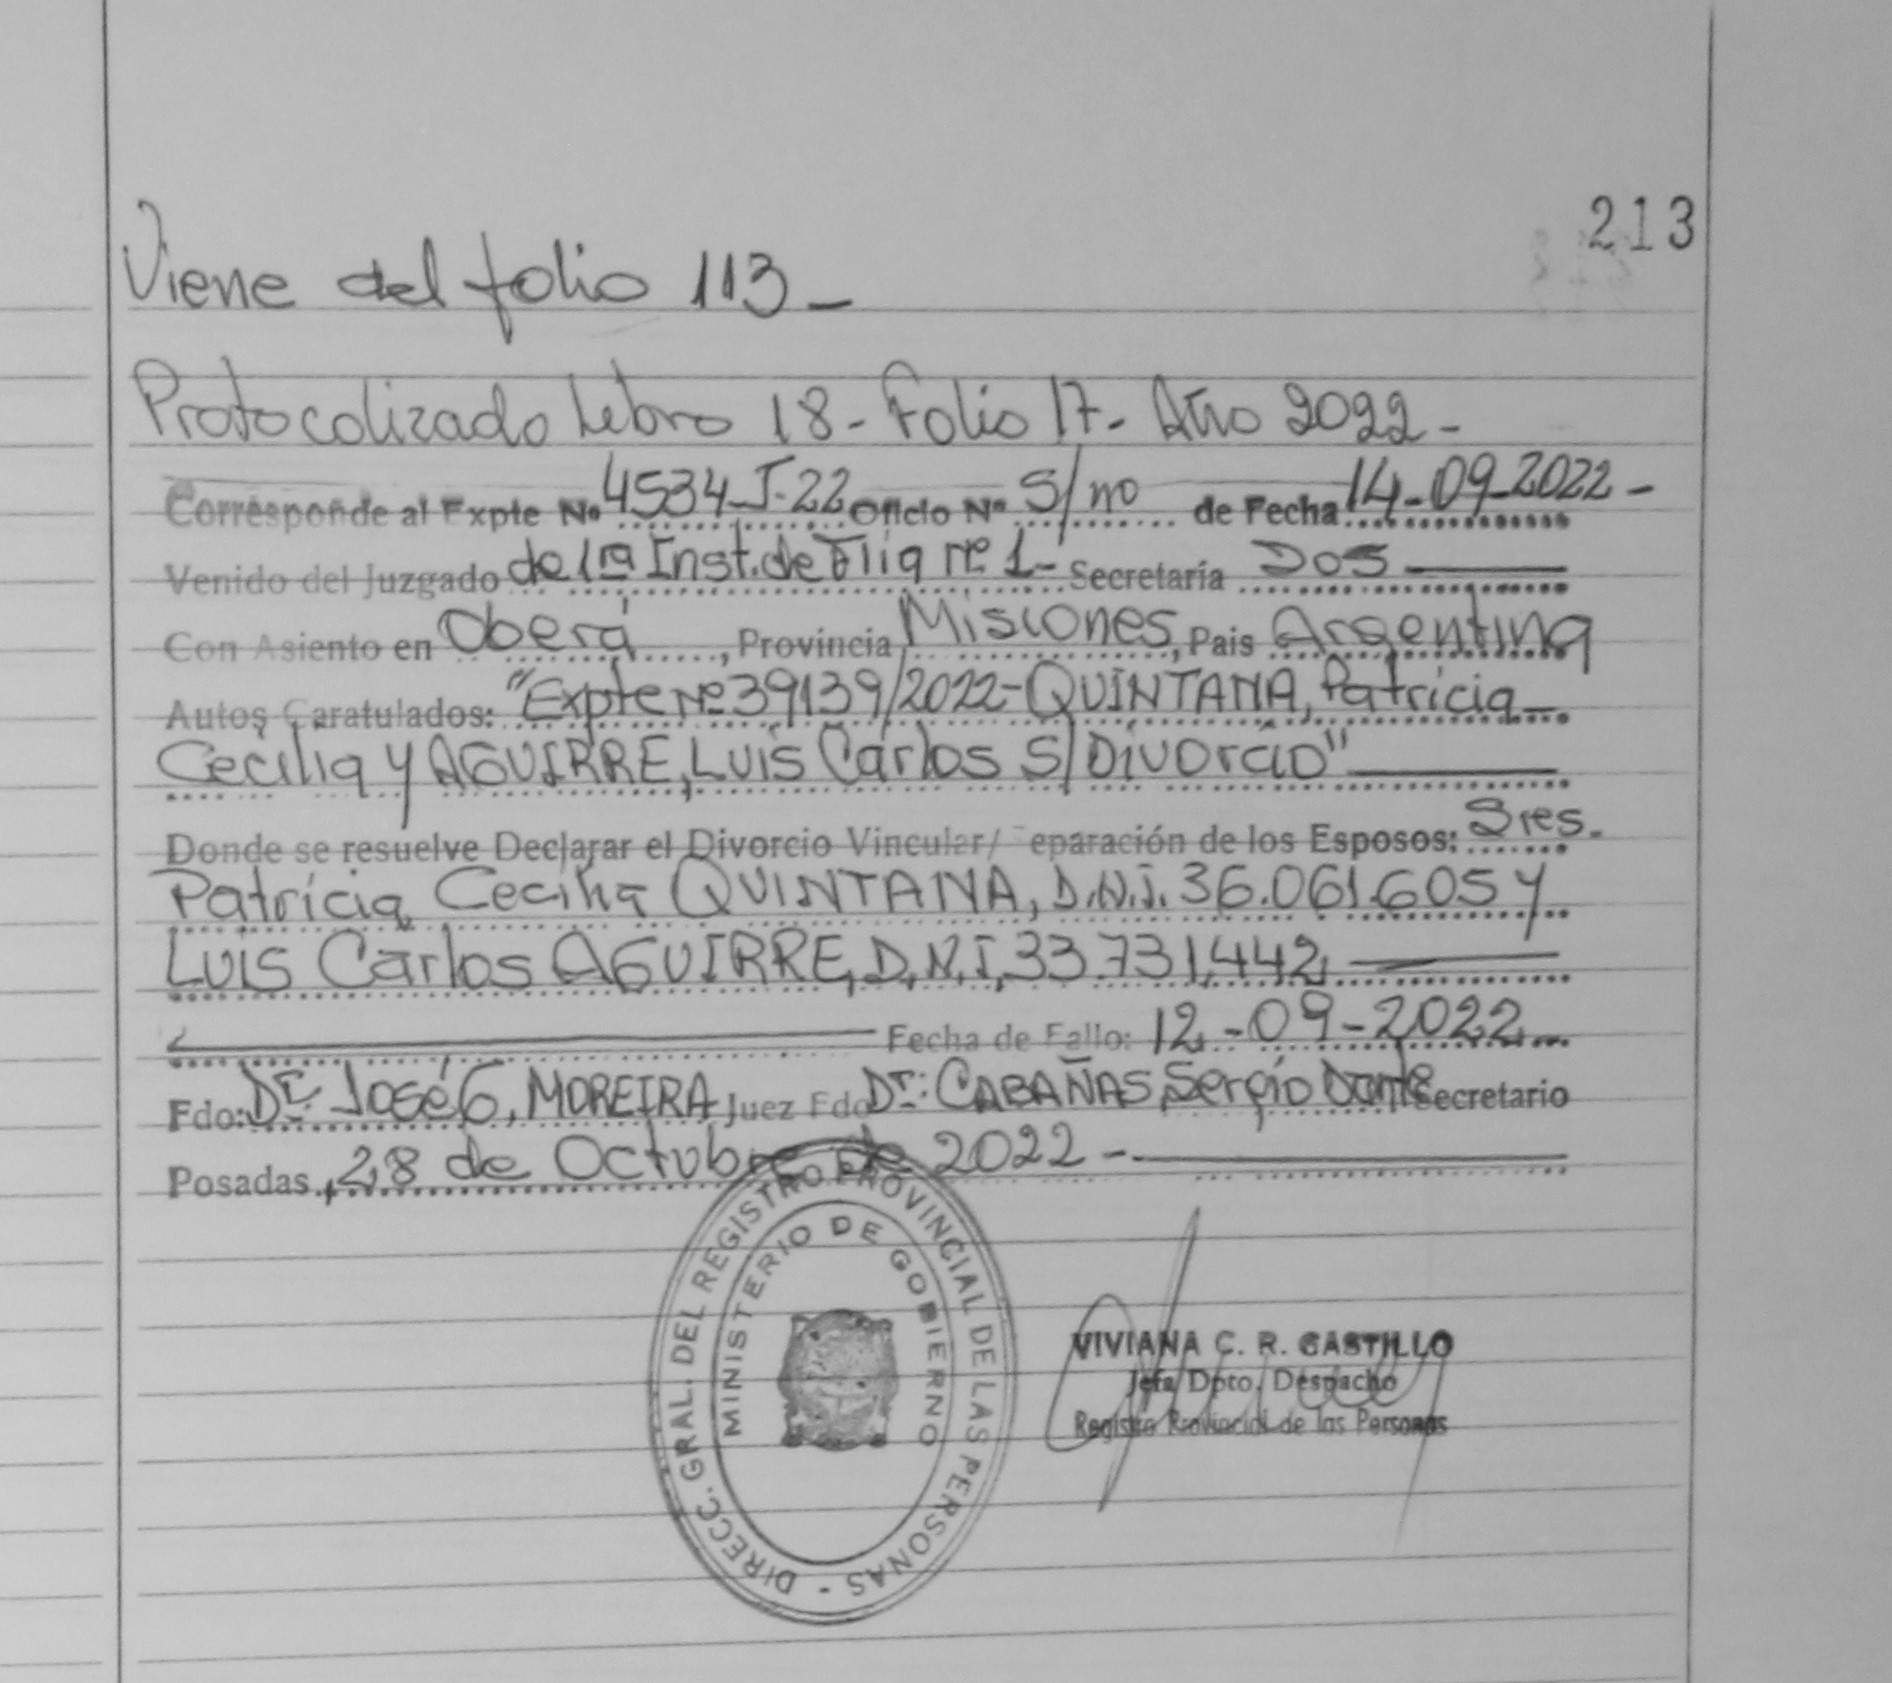 213
Viene del folio 113_
Protocolizado Libro 18- Folio 17- Año 2022-
Corresponde al Expte Nº 4534-J-22 Oficio Nº S/nº de Fecha 14-09-2022-
Venido del Juzgado de 1ra Inst. de Flia nº 1- Secretaría Dos
Con Asiento en Oberá, Provincia Misiones, Pais Argentina
Autos Caratulados: "Expte Nº 39139/2022- QUINTANA, Patricia
Cecilia y AGUIRRE, Luis Carlos S/Divorcio"
Donde se resuelve Declarar el Divorcio Vincular/ eparación de los Esposos: Sres.
Patricia Cecilia QUINTANA, D.N.I. 36.061.605 y
Luis Carlos AGUIRRE, D.N.I. 33.731.442
Fecha de Fallo: 12-09-2022
Fdo: Dr. José G. MOREIRA Juez Fdo Dr: CABAÑAS, Sergio Dante Secretario
Posadas, 28 de Octubre de 2022-
DIRECC. GRAL. DEL REGISTRO PROVINCIAL DE LAS PERSONAS -
MINISTERIO DE GOBIERNO
VIVIANA C. R. CASTILLO
Jefa Dpto. Despacho
Registro Provincial de las Personas